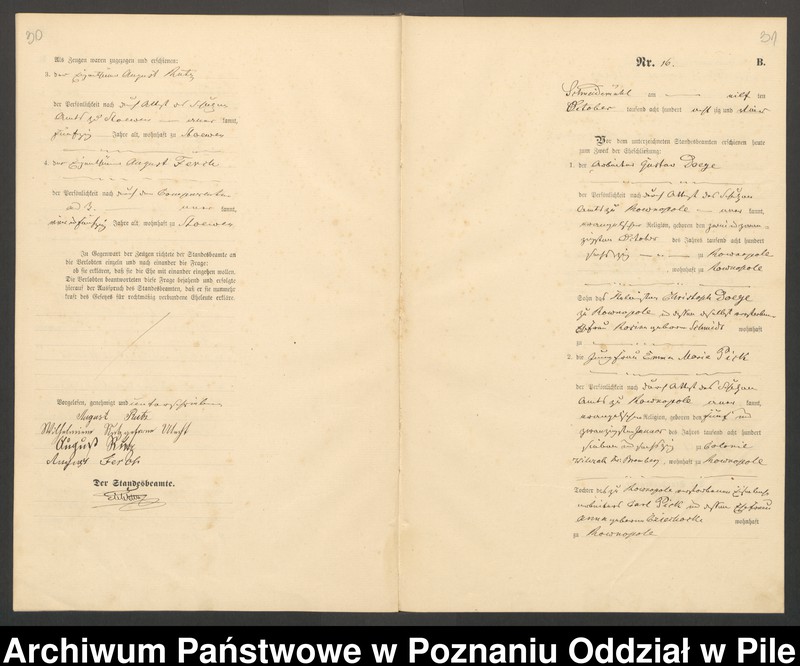 30
Als Zeugen waren zugezogen und erschienen:
3. der Eigenthümer August Rutz
der Persönlichkeit nach durch Attest des Schulzen
Amts zu Stoewen — aner kannt,
fünfzig Jahre alt, wohnhaft zu Stoewen
4. der Eigenthümer August Ferch
der Persönlichkeit nach durch den Comparenten
ad 3. aner kannt,
ein und fünfzig Jahre alt, wohnhaft zu Stoewen
In Gegenwart der Zeugen richtete der Standesbeamte an
die Verlobten einzeln und nach einander die Frage:
ob sie erklären, daß sie die Ehe mit einander eingehen wollen.
Die Verlobten beantworteten diese Frage bejahend und erfolgte
hierauf der Ausspruch des Standesbeamten, daß er sie nunmehr
kraft des Gesetzes für rechtmäßig verbundene Eheleute erkläre.
Vorgelesen, genehmigt und unterschrieben
August Rutz
Wilhelmine Rutz geborne
August Rutz
August Ferch
Der Standesbeamte.
31
Nr. 16. B.
Schneidemühl am — eilf ten
October tausend acht hundert acht zig und
Vor dem unterzeichneten Standesbeamten erschienen heute
zum Zweck der Eheschließung:
1. der Arbeiter Gustav Doege
der Persönlichkeit nach durch Attest des Schulzen
Amts zu Kownopole — aner kannt,
evangelischer Religion, geboren den zwei und zwan-
zigsten October des Jahres tausend acht hundert
sechszig — zu Kownopole
, wohnhaft zu Kownopole
Sohn des Christoph Doege
zu Kownopole und dessen daselbst verstorbenen
Ehefrau Rosine geborne Schmidt wohnhaft
zu
2. die Jungfrau Emma Maria Pick
der Persönlichkeit nach durch Attest des Schulzen
Amts zu Kownopole aner kannt,
evangelischer Religion, geboren den fünf und
zwanzigsten Januar des Jahres tausend acht hundert
sieben und sechszig zu Colonie
Wilczak Kr. Bromberg, wohnhaft zu Kownopole
Tochter des zu Kownopole verstorbenen
Carl Pick und dessen Ehefrau
Anna geborne wohnhaft
zu Kownopole
Archiwum Państwowe w Poznaniu Oddział w Pile